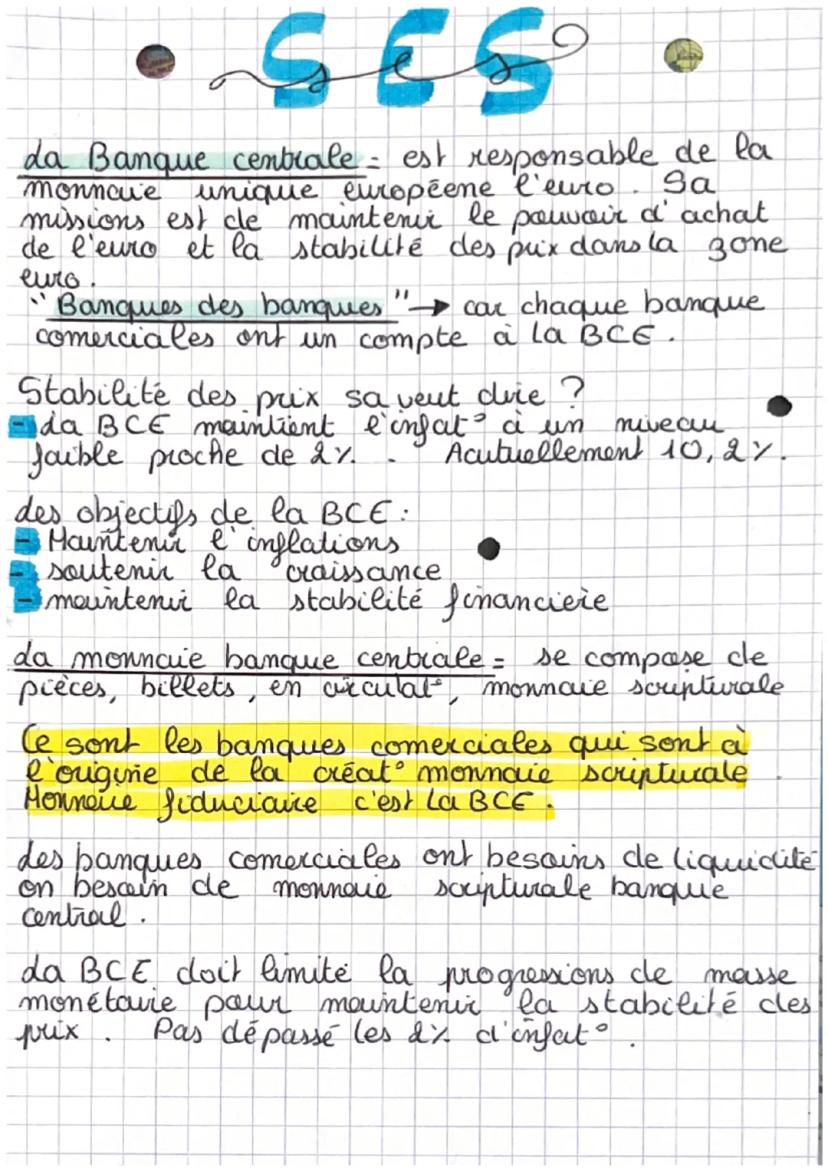 SES
ses
La Banque centrale = est responsable de la
monnaie unique européene l'euro. Sa
missions est de maintenir le pouvoir d'achat
de l'euro et la stabilité des prix dans la zone
euro.
"Banques des banques" → car chaque banque
comerciales ont un compte à la BCE.
Stabilité des prix sa veut dire ?
- La BCE maintient l'infat° à un niveau
faible proche de 2%. Acutuellement 10,2%.
Les objectifs de la BCE :
- Maintenir l'inflations
- soutenir la craissance
- maintenir la stabilité financiere
La monnaie banque centrale = se compose de
pièces, billets, en circulat°, monnaie scripturale
Ce sont les banques comerciales qui sont à
l'origine de la créat° monnaie scripturale
Monnaie fiduciaire c'est la BCE.
Les banques comerciales ont besoins de liquidité
on besoin de monnaie scripturale banque
central.
La BCE doit limité la progressions de masse
monétaire pour maintenir la stabilité des
prix. Pas dépassé les 2% d'infat°.